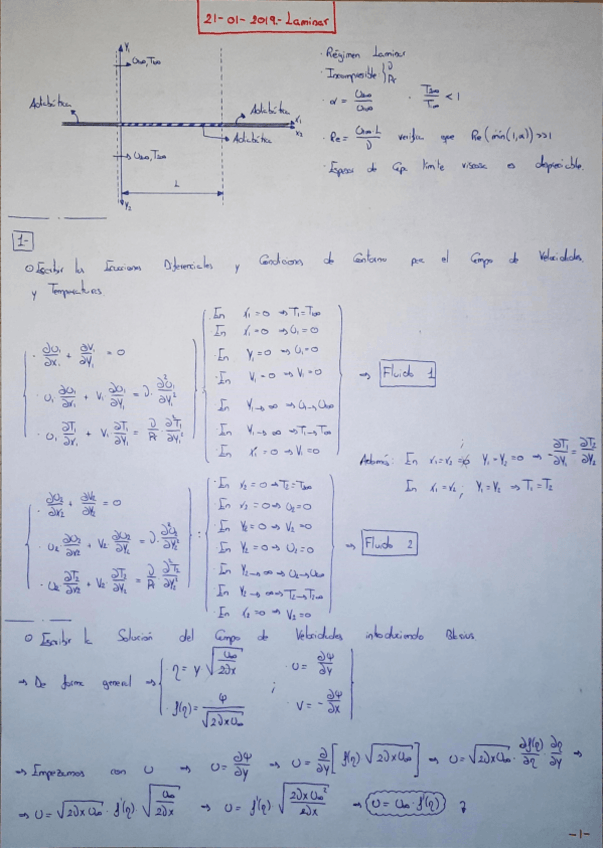 21-01-2019-Laminar
Y₁
U₁∞, T₁∞
Adiabática
Adiabática
x₁
x₂
Adiabática
U₂∞, T₂∞
L
Y₂
· Régimen Laminar
· Incompresible } ν Pr
· α = U₂∞/U₁∞ · T₂∞/T₁∞ < 1
· Re = U∞·L/ν verifica que Re(min(1,α))>>1
· Espesor de Capa límite viscosa es despreciable.
1-
O Escribir las Ecuaciones Diferenciales y Condiciones de Contorno para el Campo de Velocidades
y Temperaturas.
· ∂U₁/∂x₁ + ∂V₁/∂Y₁ = 0
· U₁ ∂U₁/∂x₁ + V₁ ∂U₁/∂Y₁ = ν·∂²U₁/∂Y₁²
· U₁ ∂T₁/∂x₁ + V₁ ∂T₁/∂Y₁ = ν/Pr · ∂²T₁/∂Y₁²
· En x₁=0 → T₁=T₁∞
· En x₁=0 → U₁=0
· En Y₁=0 → U₁=0
· En Y₁=0 → V₁=0
· En Y₁→∞ → U₁→U₁∞
· En Y₁→∞ → T₁→T₁∞
· En x₁=0 → V₁=0
→ Fluido 1
Además: En x₁=x₂=0 ; Y₁=Y₂=0 → -∂T₁/∂Y₁ = ∂T₂/∂Y₂
En x₁=x₂ ; Y₁=Y₂ → T₁=T₂
· ∂U₂/∂x₂ + ∂V₂/∂Y₂ = 0
· U₂ ∂U₂/∂x₂ + V₂ ∂U₂/∂Y₂ = ν·∂²U₂/∂Y₂²
· U₂ ∂T₂/∂x₂ + V₂ ∂T₂/∂Y₂ = ν/Pr · ∂²T₂/∂Y₂²
· En x₂=0 → T₂=T₂∞
· En x₂=0 → U₂=0
· En Y₂=0 → V₂=0
· En Y₂=0 → U₂=0
· En Y₂→∞ → U₂→U₂∞
· En Y₂→∞ → T₂→T₂∞
· En x₂=0 → V₂=0
→ Fluido 2
O Escribir la Solución del Campo de Velocidades introduciendo Blasius
→ De forma general → η = Y √(U∞/2νx) ; · U = ∂Ψ/∂Y
· f(η) = Ψ/√(2νxU∞) · V = -∂Ψ/∂x
→ Empezamos con U → U = ∂Ψ/∂Y → U = ∂/∂Y [f(η)·√(2νxU∞)] → U = √(2νxU∞) · ∂f(η)/∂η · ∂η/∂Y →
→ U = √(2νxU∞) · f'(η) · √(U∞/2νx) → U = f'(η) · √(2νxU∞²/2νx) → U = U∞·f'(η)
-1-